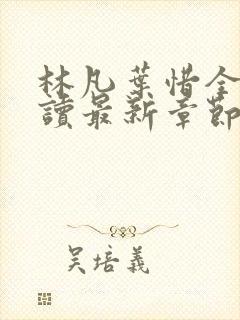 林凡葉惜全
讀最新章節
吴培義